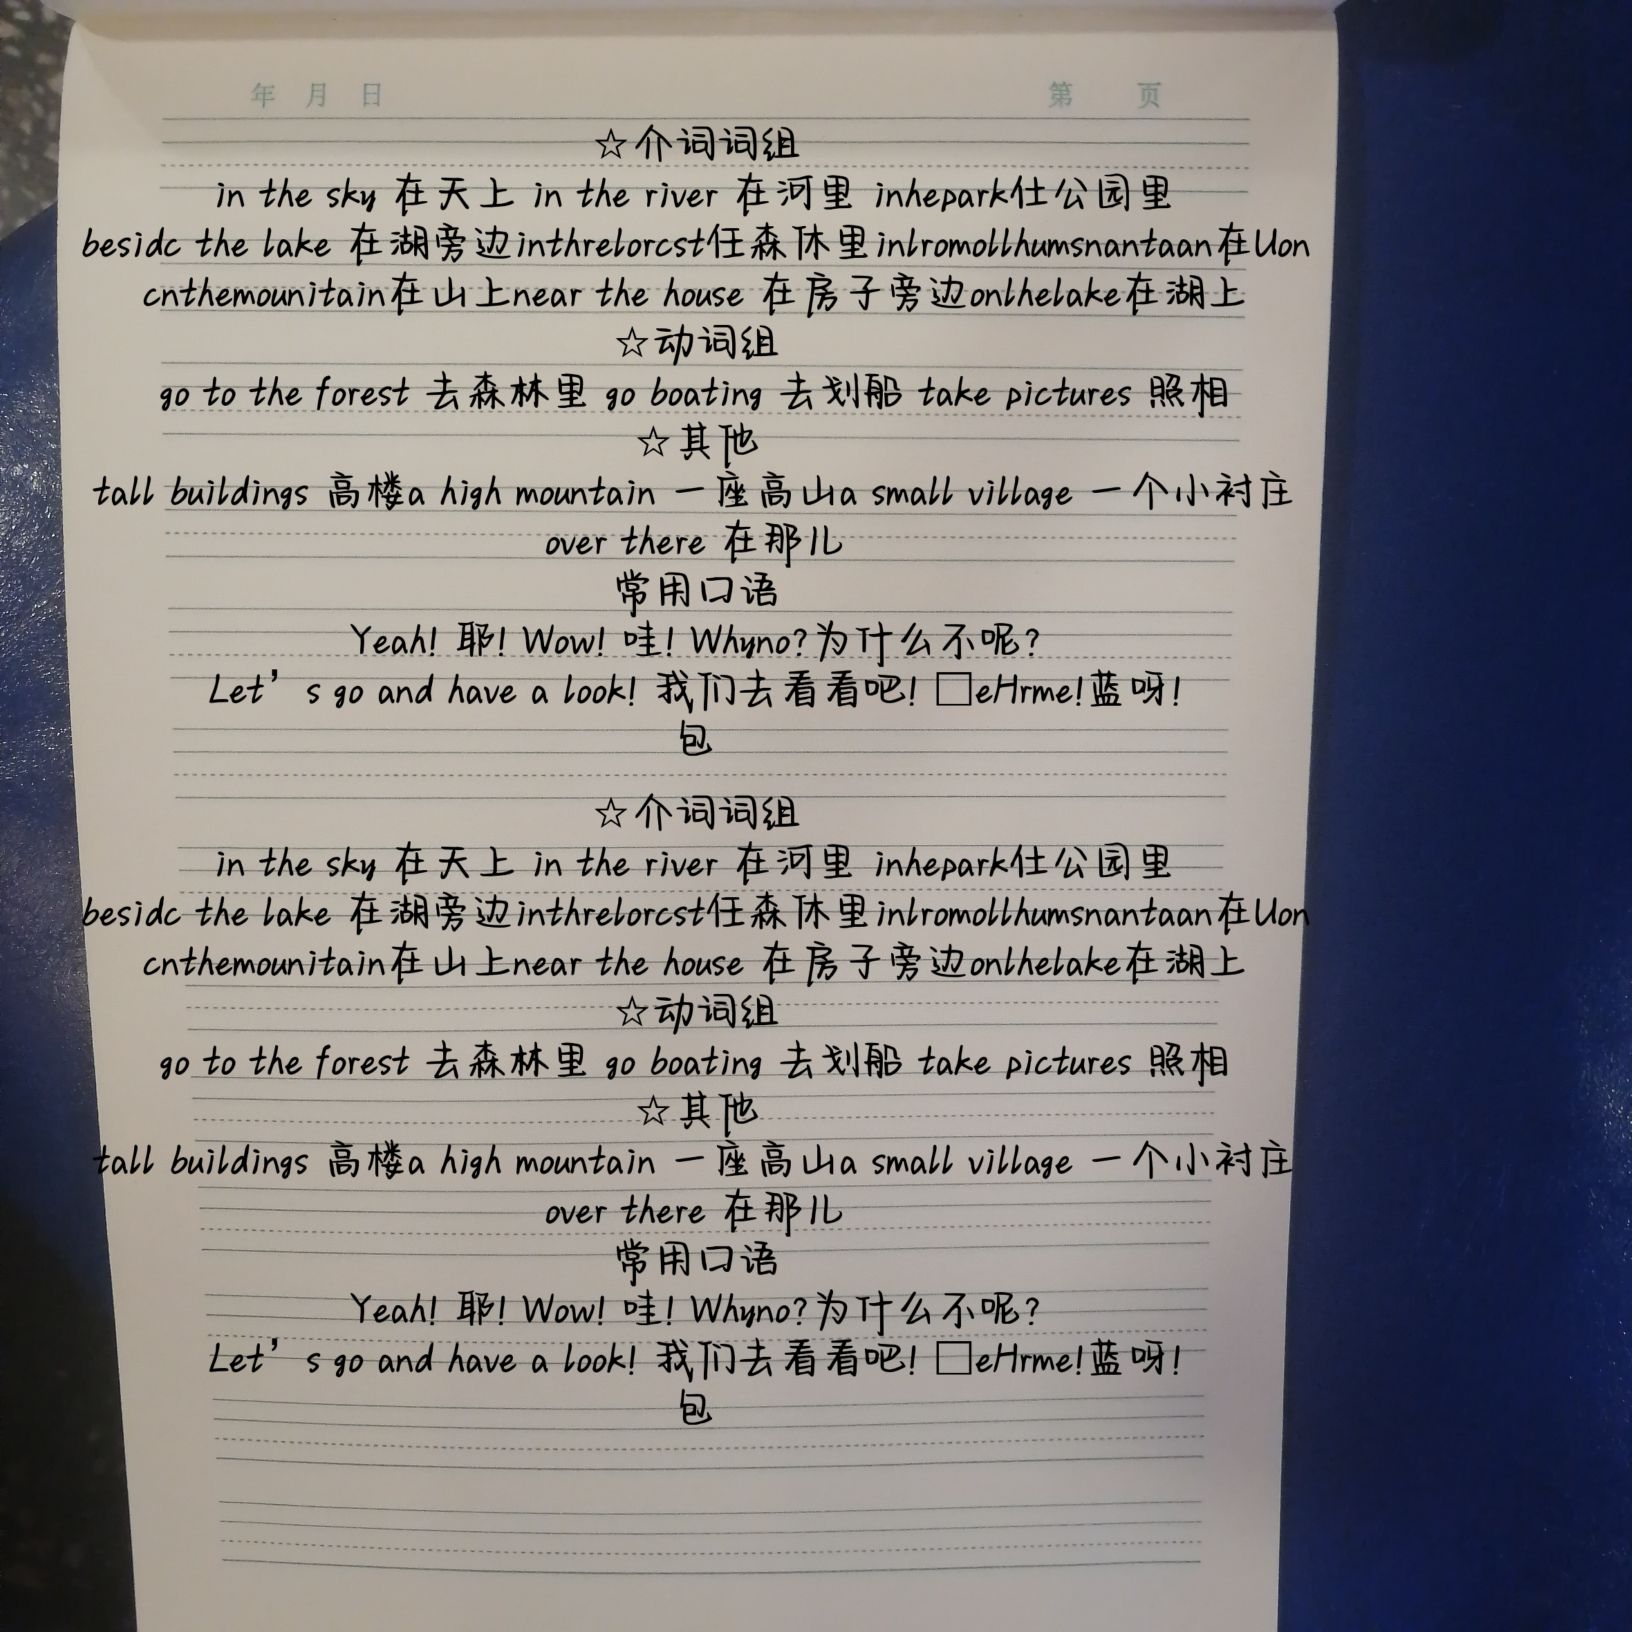 年 月 日 第 页
☆介词词组
in the sky 在天上 in the river 在河里 inhepark仕公园里
besidc the lake 在湖旁边inthrelorcst任森休里inlromollhumsnantaan在Uon
cnthemounitain在山上near the house 在房子旁边onlhelake在湖上
☆动词组
go to the forest 去森林里 go boating 去划船 take pictures 照相
☆其他
tall buildings 高楼a high mountain 一座高山a small village 一个小衬庄
over there 在那儿
常用口语
Yeah! 耶! Wow! 哇! Whyno?为什么不呢?
Let’s go and have a look! 我们去看看吧! □eHrme!蓝呀!
包
☆介词词组
in the sky 在天上 in the river 在河里 inhepark仕公园里
besidc the lake 在湖旁边inthrelorcst任森休里inlromollhumsnantaan在Uon
cnthemounitain在山上near the house 在房子旁边onlhelake在湖上
☆动词组
go to the forest 去森林里 go boating 去划船 take pictures 照相
☆其他
tall buildings 高楼a high mountain 一座高山a small village 一个小衬庄
over there 在那儿
常用口语
Yeah! 耶! Wow! 哇! Whyno?为什么不呢?
Let’s go and have a look! 我们去看看吧! □eHrme!蓝呀!
包